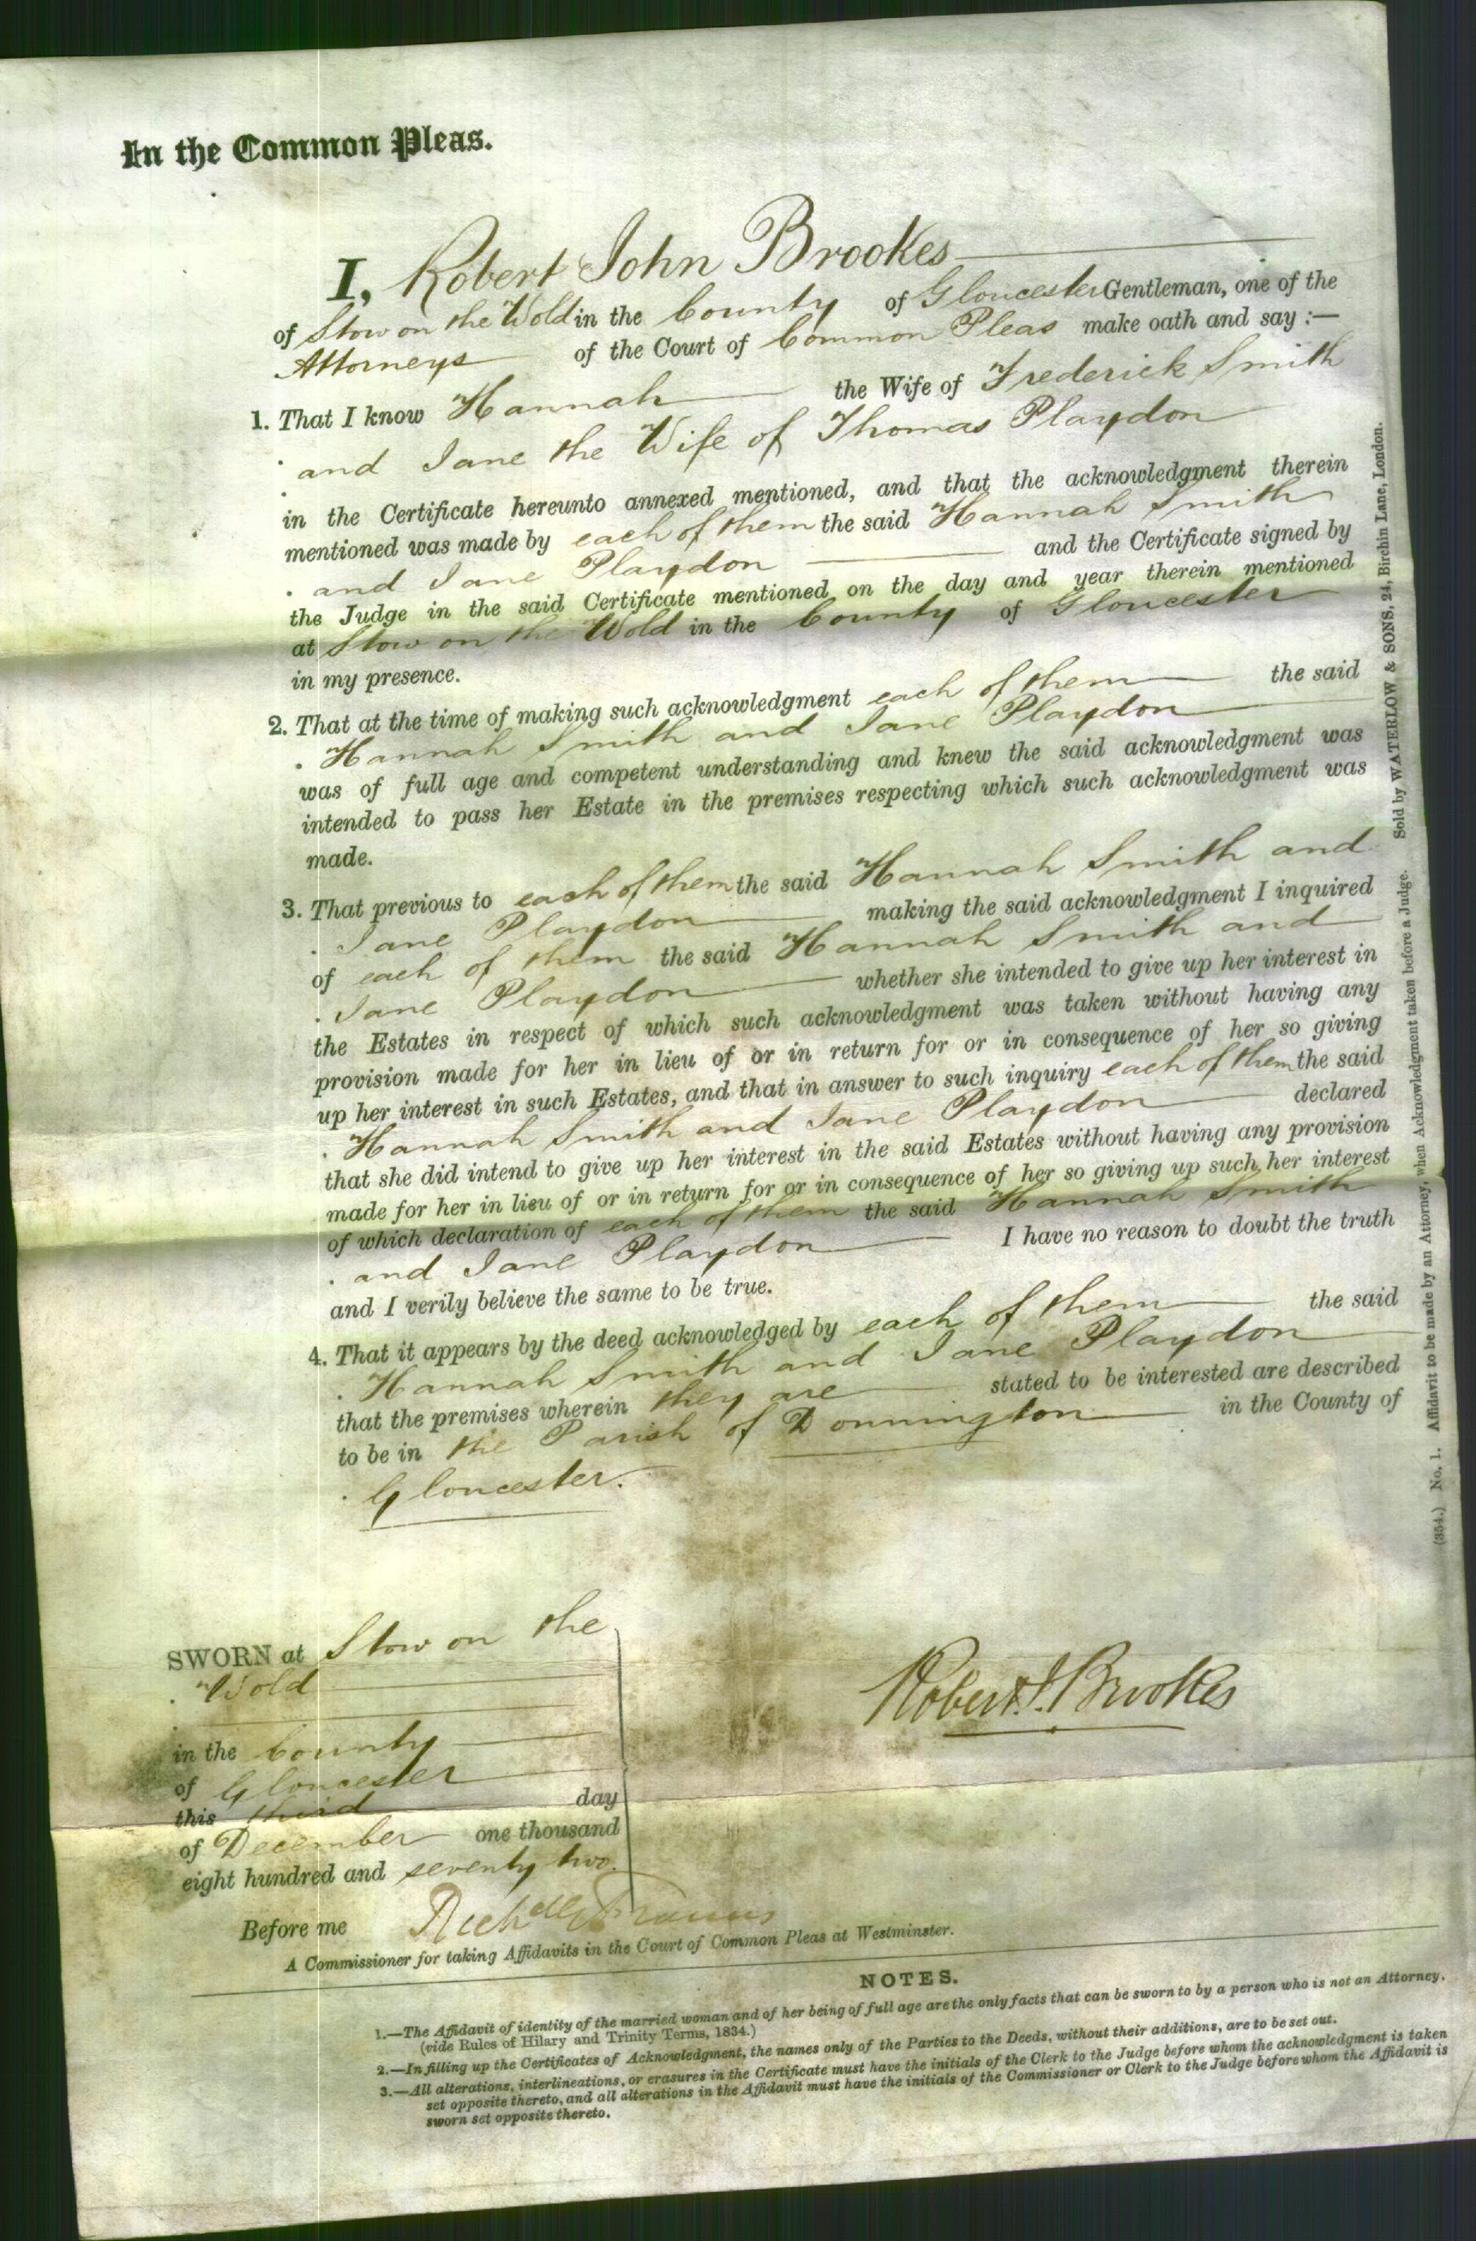 In the Common Pleas.
I, Robert John Brookes
of Stow on the Wold in the County of Gloucester Gentleman, one of the
Attorneys of the Court of Common Pleas make oath and say :—
1. That I know Hannah the Wife of Frederick Smith
and Jane the Wife of Thomas Playdon
in the Certificate hereunto annexed mentioned, and that the acknowledgment therein
mentioned was made by each of them the said Hannah Smith
and Jane Playdon and the Certificate signed by
the Judge in the said Certificate mentioned on the day and year therein mentioned
at Stow on the Wold in the County of Gloucester
in my presence.
2. That at the time of making such acknowledgment each of them the said
Hannah Smith and Jane Playdon
was of full age and competent understanding and knew the said acknowledgment was
intended to pass her Estate in the premises respecting which such acknowledgment was
made.
3. That previous to each of them the said Hannah Smith and
Jane Playdon making the said acknowledgment I inquired
of each of them the said Hannah Smith and
Jane Playdon whether she intended to give up her interest in
the Estates in respect of which such acknowledgment was taken without having any
provision made for her in lieu of or in return for or in consequence of her so giving
up her interest in such Estates, and that in answer to such inquiry each of them the said
Hannah Smith and Jane Playdon declared
that she did intend to give up her interest in the said Estates without having any provision
made for her in lieu of or in return for or in consequence of her so giving up such her interest
of which declaration of each of them the said Hannah Smith
and Jane Playdon I have no reason to doubt the truth
and I verily believe the same to be true.
4. That it appears by the deed acknowledged by each of them the said
Hannah Smith and Jane Playdon
that the premises wherein they are stated to be interested are described
to be in the Parish of Donnington in the County of
Gloucester.
SWORN at Stow on the
Wold
in the County
of Gloucester
this third day
of December one thousand
eight hundred and seventy two.
Robert J. Brookes
Before me
A Commissioner for taking Affidavits in the Court of Common Pleas at Westminster.
NOTES.
1.—The Affidavit of identity of the married woman and of her being of full age are the only facts that can be sworn to by a person who is not an Attorney.
(vide Rules of Hilary and Trinity Terms, 1834.)
2.—In filling up the Certificates of Acknowledgment, the names only of the Parties to the Deeds, without their additions, are to be set out.
3.—All alterations, interlineations, or erasures in the Certificate must have the initials of the Clerk to the Judge before whom the acknowledgment is taken
set opposite thereto, and all alterations in the Affidavit must have the initials of the Commissioner or Clerk to the Judge before whom the Affidavit is
sworn set opposite thereto.
(354.) No. 1. Affidavit to be made by an Attorney, when Acknowledgment taken before a Judge. Sold by WATERLOW & SONS, 24, Birchin Lane, London.